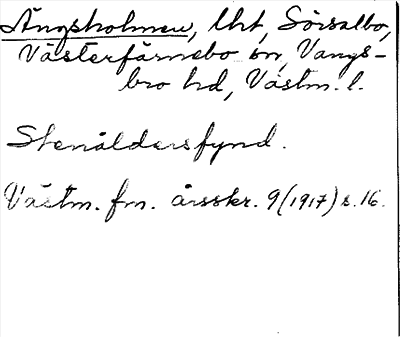 Ängsholmen, lht, Sörsalbo,
Västerfärnebo sn, Vangs-
bro hd, Västm. l.
Stenåldersfynd.
Västm. fm. årsskr. 9 (1917) s. 16.